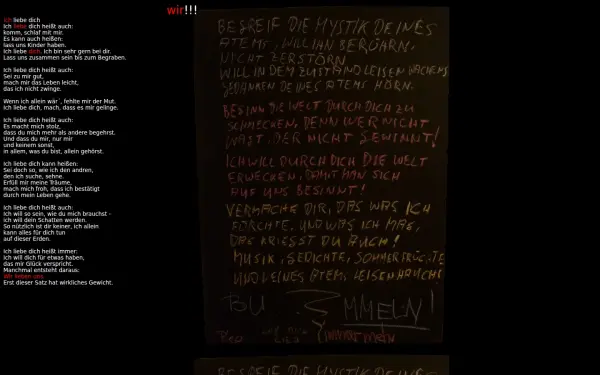 wir!!!
Ich liebe dich
Ich liebe dich heißt auch:
komm, schlaf mit mir.
Es kann auch heißen:
lass uns Kinder haben.
Ich liebe dich. Ich bin sehr gern bei dir.
Lass uns zusammen sein bis zum Begraben.
Ich liebe dich heißt auch:
Sei zu mir gut,
mach mir das Leben leicht,
das ich nicht zwinge.
Wenn ich allein wär´, fehlte mir der Mut.
Ich liebe dich, mach, dass es mir gelinge.
Ich liebe dich heißt auch:
Es macht mich stolz,
dass du mich mehr als andere begehrst.
Und dass du mir, nur mir
und keinem sonst,
in allem, was du bist, allein gehörst.
Ich liebe dich kann heißen:
Sei doch so, wie ich den andren,
den ich suche, sehne.
Erfüll mir meine Träume,
mach mich froh, dass ich bestätigt
durch mein Leben gehe.
Ich liebe dich heißt auch:
Ich will so sein, wie du mich brauchst -
ich will dein Schatten werden.
So nützlich ist dir keiner, ich allein
kann alles für dich tun
auf dieser Erden.
Ich liebe dich heißt immer:
Ich will dich für etwas haben,
das mir Glück verspricht.
Manchmal entsteht daraus:
Wir lieben uns.
Erst dieser Satz hat wirkliches Gewicht.
BEGREIF DIE MYSTIK DEINES
ATEMS, WILL IHN BERÜHRN,
NICHT ZERSTÖRN
WILL IN DEM ZUSTAND LEISEN WACHENS
GEDANKEN DEINES ATEMS HÖRN.
BEGINN DIE WELT DURCH DICH ZU
SCHMECKEN, DENN WER NICHT
WAGT, DER NICHT GEWINNT!
ICH WILL DURCH DICH DIE WELT
ERWECKEN, DAMIT MAN SICH
AUF UNS BESINNT!
VERMACHE DIR, DAS WAS ICH
FÜRCHTE, UND WAS ICH MAG,
DAS KRIEGST DU AUCH!
MUSIK, GEDICHTE, SOMMERFRÜCHTE
UND MEINES ATEMS LEISEN HAUCH!
MMELN!
BEGREIF DIE MYSTIK DEINES